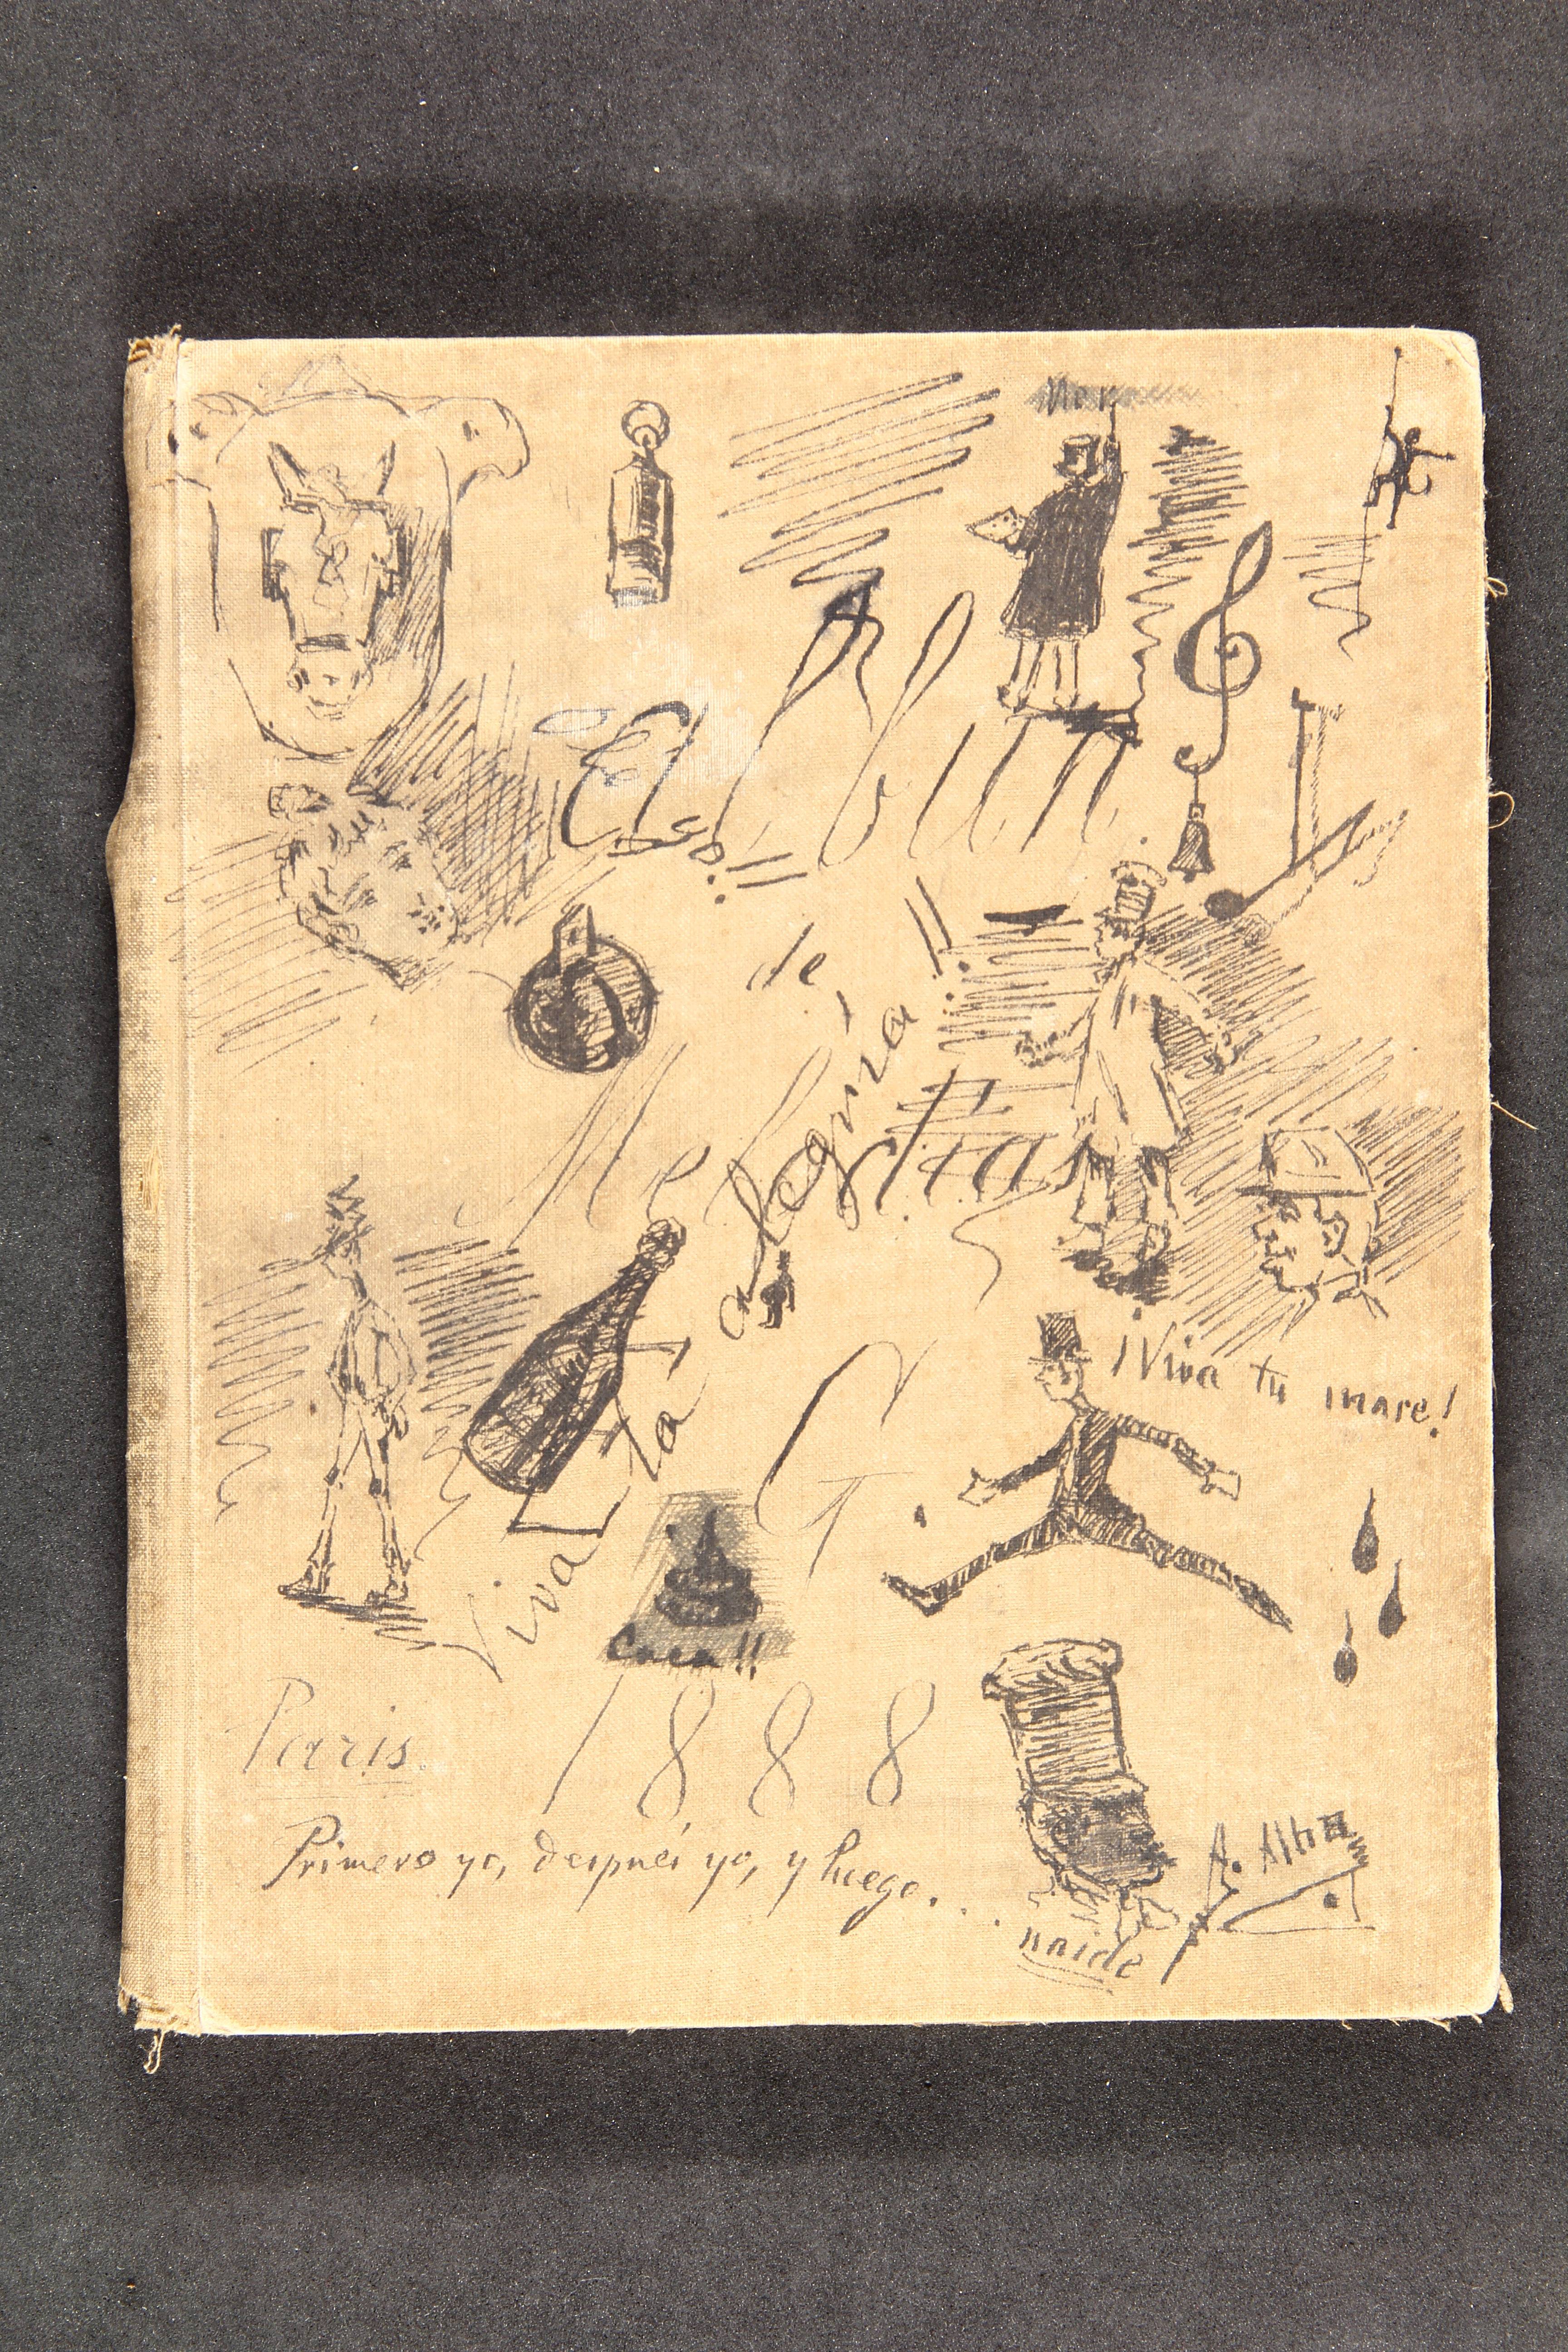 El Album
de
Viva la alegría!!
G
¡Viva tu mare!
Caca!!
Paris.
1888
Primero yo, después yo, y luego...
naide
A. Alba